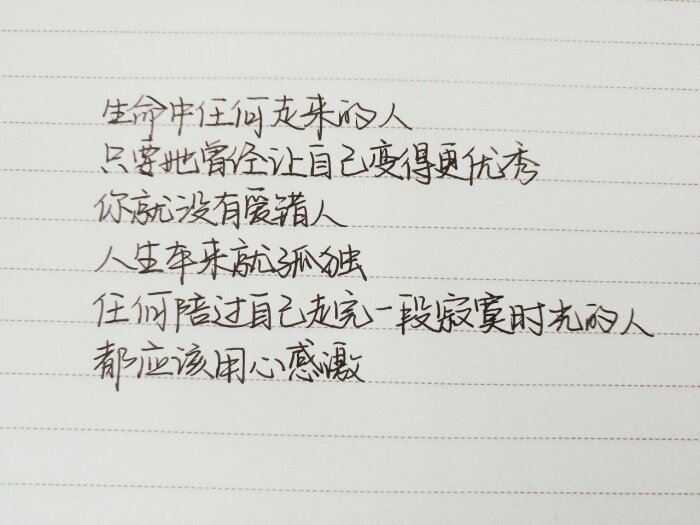 生命中任何走来的人
只要她曾经让自己变得更优秀
你就没有爱错人
人生本来就孤独
任何陪过自己走完一段寂寞时光的人
都应该用心感激